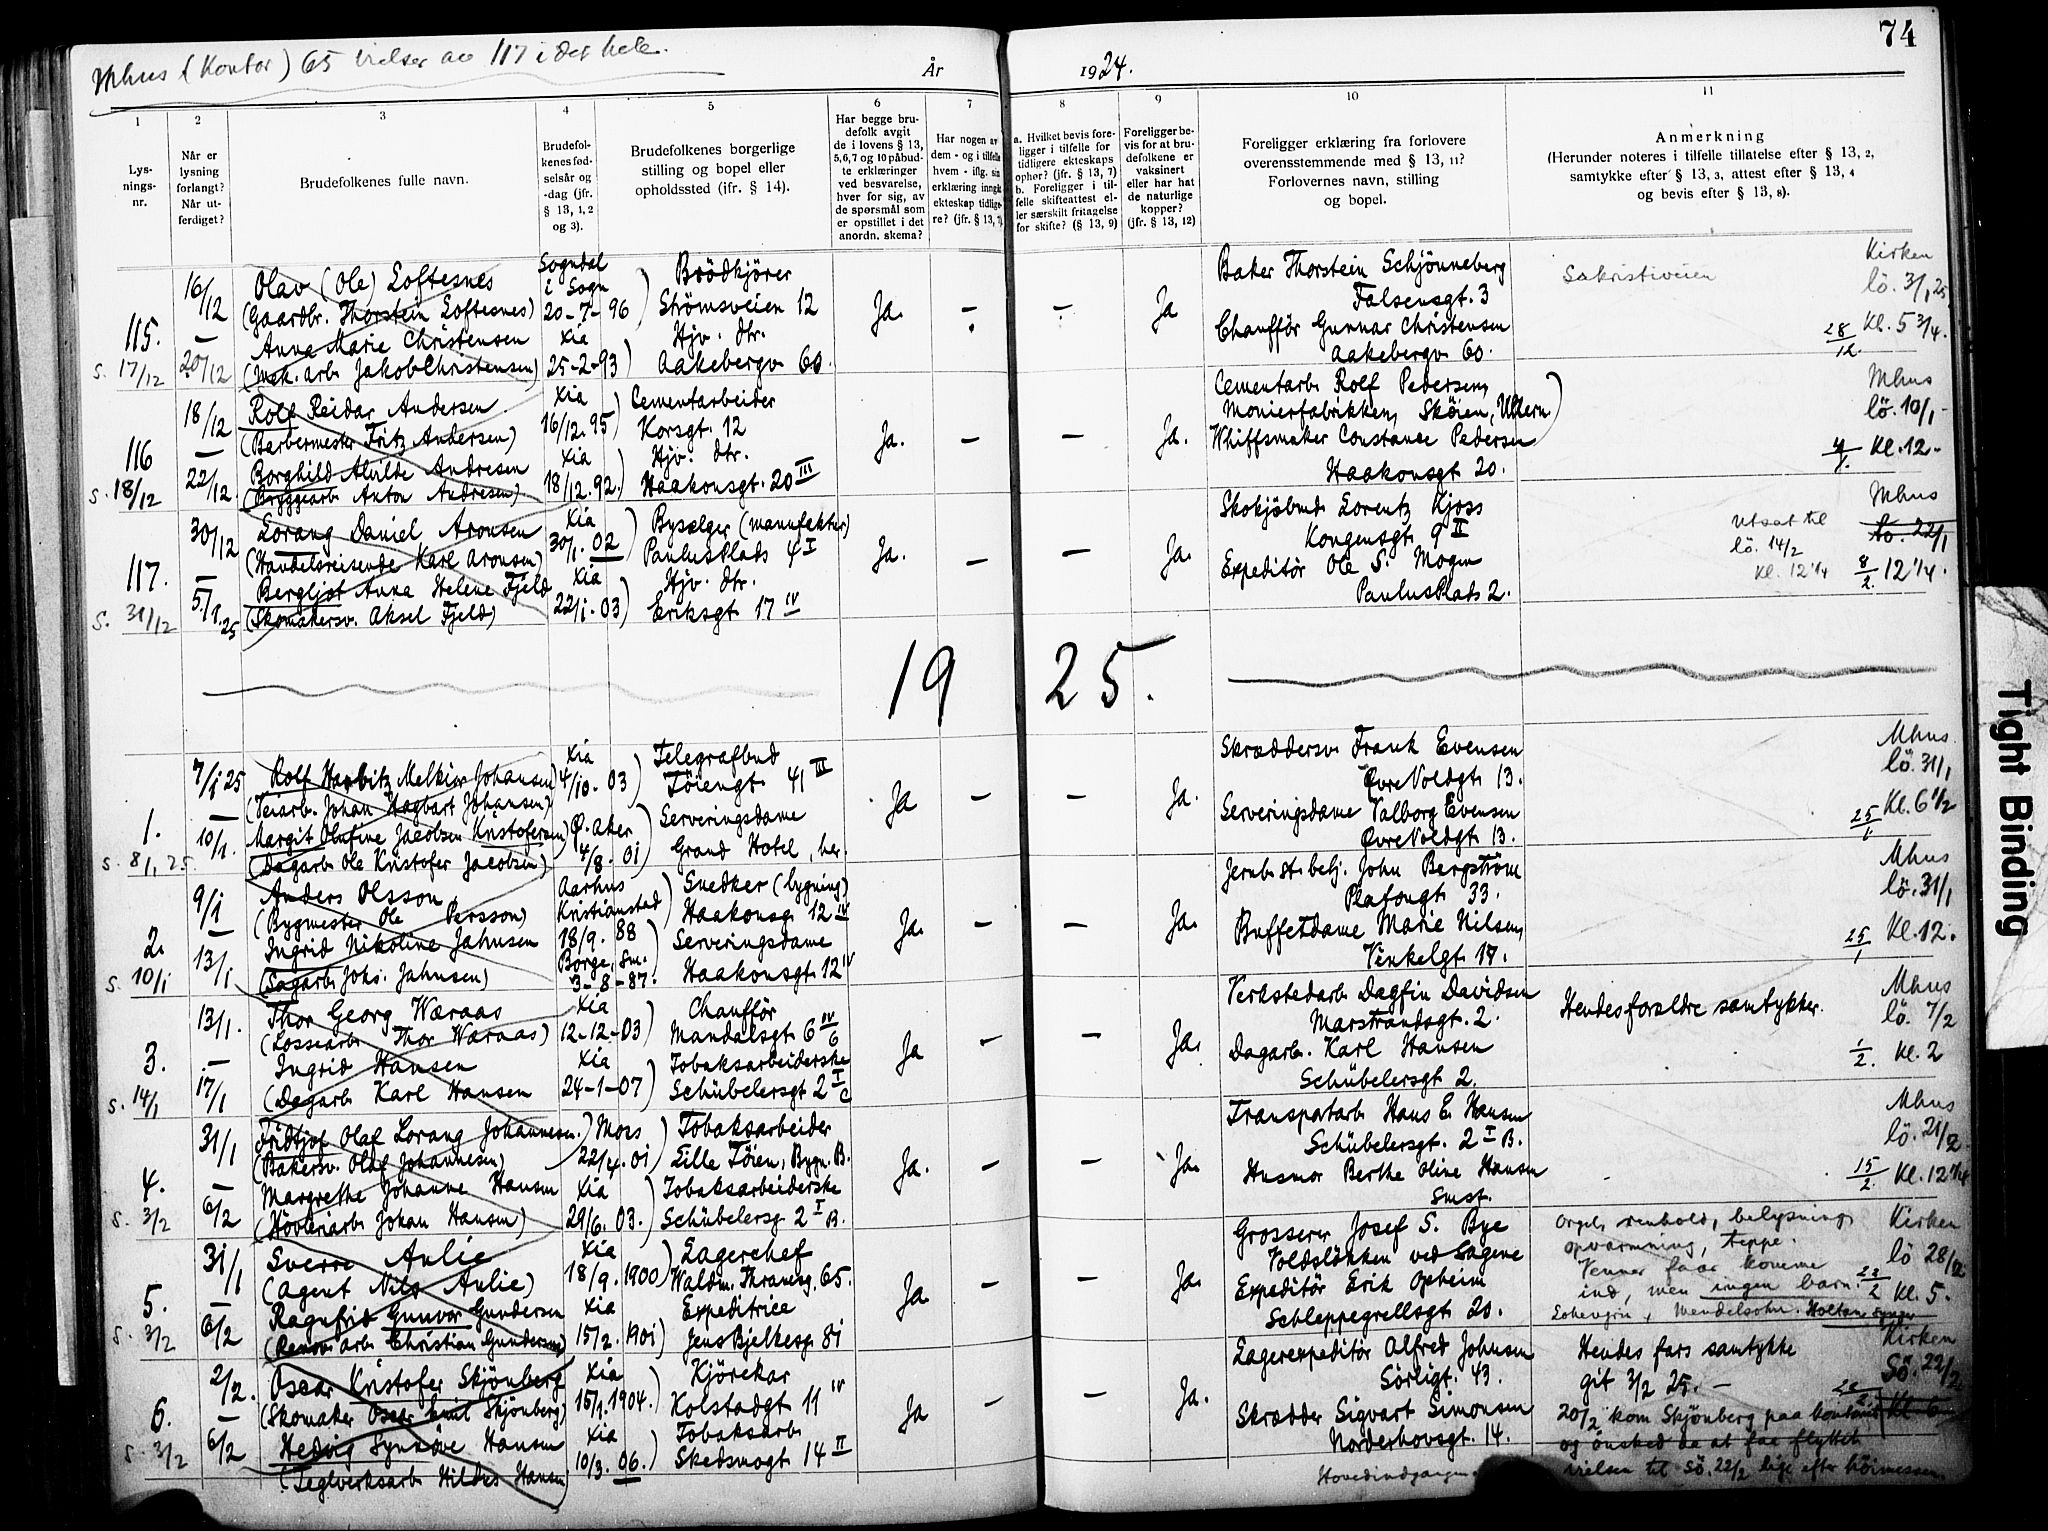 74
Mhus (Kontor) 65 vielser av 117 i det hele.
År 1924.
1 2 3 4 5 6 7 8 9 10 11
Lysningsnr.
Når er lysning forlangt? Når utferdiget?
Brudefolkenes fulle navn.
Brudefolkenes fødselsår og -dag (jfr. § 13, 1, 2 og 3).
Brudefolkenes borgerlige stilling og bopel eller opholdssted (ifr. § 14).
Har begge brudefolk avgit de i lovens § 13, 5,6,7 og 10 påbudte erklæringer ved besvarelse, hver for sig, av de spørsmål som er opstillet i det anordn. skema?
Har nogen av dem - og i tilfelle hvem - iflg. sin erklæring inngått ekteskap tidligere? (jfr. § 13, 7)
a. Hvilket bevis foreligger i tilfelle for tidligere ekteskaps ophør? (jfr. § 13, 7) b. Foreligger i tilfelle skifteattest eller særskilt fritagelse for skifte? (§ 13, 9)
Foreligger bevis for at brudefolkene er vaksinert eller har hat de naturlige kopper? (jfr. § 13, 12)
Foreligger erklæring fra forlovere overensstemmende med § 13, 11? Forlovernes navn, stilling og bopel.
Anmerkning (Herunder noteres i tilfelle tillatelse efter § 13, 2, samtykke efter § 13, 3, attest efter § 13, 4 og bevis efter § 13, 8).
115.
s. 17/12
16/12 – 20/12
Olav (Ole) Loftesnes
(Gaardbr. Thorstein Loftesnes)
Anna Marie Christensen
(Mek. arb. Jakob Christensen)
Sogndal i Sogn
20-7-96
Xia
25-2-93
Brödkjörer
Strömsveien 12
Hjv. dtr.
Aakebergv. 60.
Ja. – – Ja
Baker Thorstein Schjönneberg
Falsensgt. 3
Chaufför Gunnar Christensen
Aakebergv. 60.
Sakristiveien
Kirken
lö. 3/1 25
Kl. 5 3/4.
28/12.
116
s. 18/12
18/12 – 22/12.
Rolf Reidar Andersen
(Barbermester Fritz Andersen)
Borghild Alvilde Andresen
(Bryggearb. Anton Andresen).
Xia
16/12. 95
Xia
18/12. 92.
Cementarbeider
Korsgt. 12
Hjv. dtr.
Haakonsgt. 20 III
Ja. – – Ja.
Cementarb. Rolf Pedersen,
Monierfabrikken, Sköien, Ullern
Whiffsmaker Constance Pedersen
Haakonsgt 20.
Mhus
lö. 10/1
Kl. 12.
117.
s. 31/12
30/12 – 5/1. 25
Lorang Daniel Aronsen
(Handelsreisende Karl Aronsen)
Bergljot Anna Helene Fjeld
(Skomakersv. Aksel Fjeld)
Xia
30/1. 02
Xia
22/1. 03
Byselger (manufaktur)
Paulus Plads 4 I
Hjv. dtr.
Eriksgt. 17 IV
Ja. – – Ja.
Skokjöbmd Lorentz Kjoss
Kongensgt. 9 II
Expeditör Ole S. Mogen
Paulus Plads 2.
Utsat til
lö. 14/2
Kl. 12 1/4
Mhus
lö. 22/1
8/2. 12 1/4.
1925.
1.
s. 8/1. 25.
7/1 25 – 10/1.
Rolf Harbitz Melkior Johansen
(Johan Hagbart Johansen)
Margit Olufine Jacobsen Kristofersen
(Dagarb. Ole Kristofer Jacobsen)
Xia
4/10. 03
Ø. Aker
4/8. 01
Telegrafbud
Töiengt. 41 III
Serveringsdame
Grand Hotel, her.
Ja – – Ja.
Skræddersv. Frank Evensen
Øvre Voldgt. 13.
Serveringsdame Valborg Evensen
Øvre Voldgt. 13.
Mhus.
lö. 31/1
Kl. 6 1/2
25/1
2.
s. 10/1
9/1 – 13/1
Anders Olsson
(Bygmester Ole Persson)
Ingrid Nikoline Jahnsen
(Sagarb. Johs. Jahnsen)
Aarhus
Kristianstad
18/9. 88
Borge, Sm.
3-8-87.
Snedker (bygning)
Haakonsg. 12 IV
Serveringsdame
Haakonsgt. 12 IV
Ja. – – Ja.
Jernb. st. betj. John Bergström
Platougt. 33.
Buffetdame Marie Nilsen,
Vinkelgt. 17.
Mhus
lö. 31/1
Kl. 12.
25/1
3.
s. 14/1
13/1. – 17/1
Thor Georg Wæraas
(Lossearb. Thor Wæraas)
Ingrid Hansen
(Dagarb. Karl Hansen
Xia
12-12-03
Xia
24-1-07
Chaufför
Mandalsgt. 6 IV
Tobaksarbeiderske
Schübelersgt. 2 I c
Ja – – Ja.
Verkstedarb. Dagfin Davidsen
Marstrandsgt. 2.
Dagarb. Karl Hansen
Schübelersgt. 2.
Hendes forældre samtykker.
Mhus
lö. 7/2
Kl. 2
1/2.
4.
s. 3/2
31/1 – 6/2
Fridtjof Olaf Lorang Johannesen.
(Bakersv. Olaf Johannesen)
Margrethe Johanne Hansen
(Høvleriarb. Johan Hansen)
Moss
22/4. 01
Xia
29/6. 03.
Tobaksarbeider
Lille Töien, Bygn. B.
Tobaksarbeiderske
Schübelersg. 2 I B.
Ja. – – Ja.
Transportarb. Hans E. Hansen
Schübelersgt. 2 I B.
Husmor Berthe Oline Hansen
Smst.
Mhus
lö. 21/2
15/2. Kl. 12 1/4
5.
s. 3/2
31/1 – 6/2
Sverre Aulie
(Agent Nils Aulie)
Ragnfrid Gunvor Gundersen
(Renov. arb. Christian Gundersen)
Xia
18/9. 1900
Xia
15/2. 1901
Lagerchef
Waldm. Thranesg. 65.
Expeditrice
Jens Bjelkesg. 81
Ja – – Ja.
Grosserer Josef S. Bye
Voldslökken ved Sagene
Expeditör Erik Opheim
Schleppegrellsgt. 20.
Orgel, renhold, belysning,
opvarmning, teppe.
Venner faar komme
ind, men ingen barn.
Lohengrin, Mendelsohn. Holtan synger
Kirken
lö 28/2
Kl. 5.
22/2
6.
s. 3/2
2/2. – 6/2
Oscar Kristofer Skjönberg
(Skomaker Oscar Emil Skjönberg)
Hedvig Synnöve Hansen
(Teglverksarb. Hildus Hansen)
Xia
15/1. 1904.
Xia
10/3. 06.
Kjörekar
Kolstadgt. 11 IV
Tobaksarb.
Skedsmogt. 14 II
Ja – – Ja.
Lagerexpeditör Alfred Johnsen
Sörligt. 43.
Skrædder Sigvart Simonsen
Norderhovsgt. 14.
Hovedindgangen.
Hendes fars samtykke
git 3/2 25. –
20/2 kom Skjönberg paa kontoret
og önsked da at faa flyttet
vielsen til Sö. 22/2 lige efter höimessen.
Kirken
Sö. 22/2
Kl. 6
Tight Binding